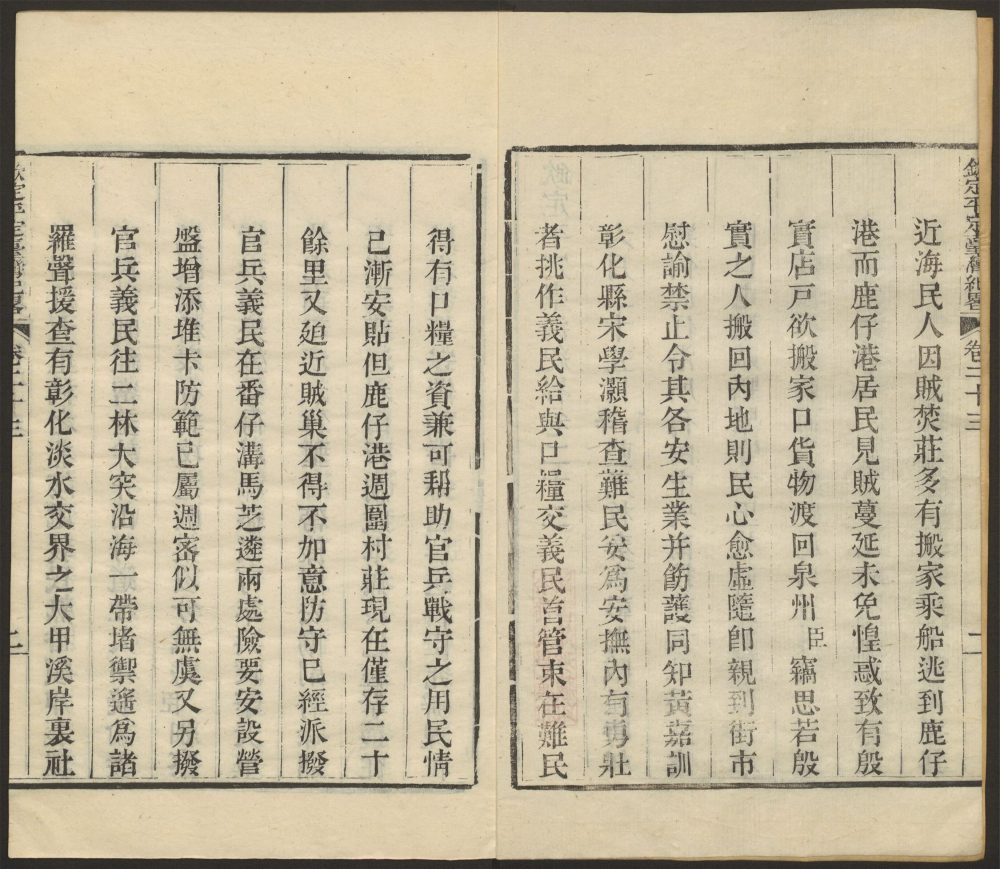 欽定平定臺灣紀畧 卷三十三 二
近海民人因賊焚莊多有搬家乘船逃到鹿仔
港而鹿仔港居民見賊蔓延未免惶惑致有殷
實店戸欲搬家口貨物渡回泉州臣竊思若殷
實之人搬回內地則民心愈虛隨卽親到街市
慰諭禁止令其各安生業并飭護同知黃嘉訓
彰化縣宋學灝稽查難民妥為安撫內有勇壯
者挑作義民給與口糧交義民首管束在難民
得有口糧之資兼可帮助官兵戰守之用民情
已漸安貼但鹿仔港週圍村莊現在僅存二十
餘里又廹近賊巢不得不加意防守已經派撥
官兵義民在番仔溝馬芝遴兩處險要安設營
盤增添堆卡防範已屬週密似可無虞又另撥
官兵義民往二林大突沿海一帶堵禦遙為諸
羅聲援查有彰化淡水交界之大甲溪岸裏社
欽定平定臺灣紀畧 卷三十三